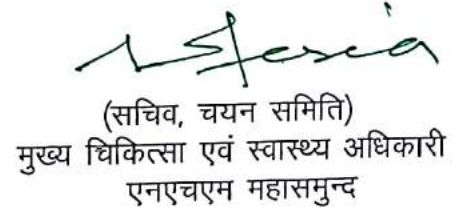 (सचिव, चयन समिति)
मुख्य चिकित्सा एवं स्वास्थ्य अधिकारी
एनएचएम महासमुन्द